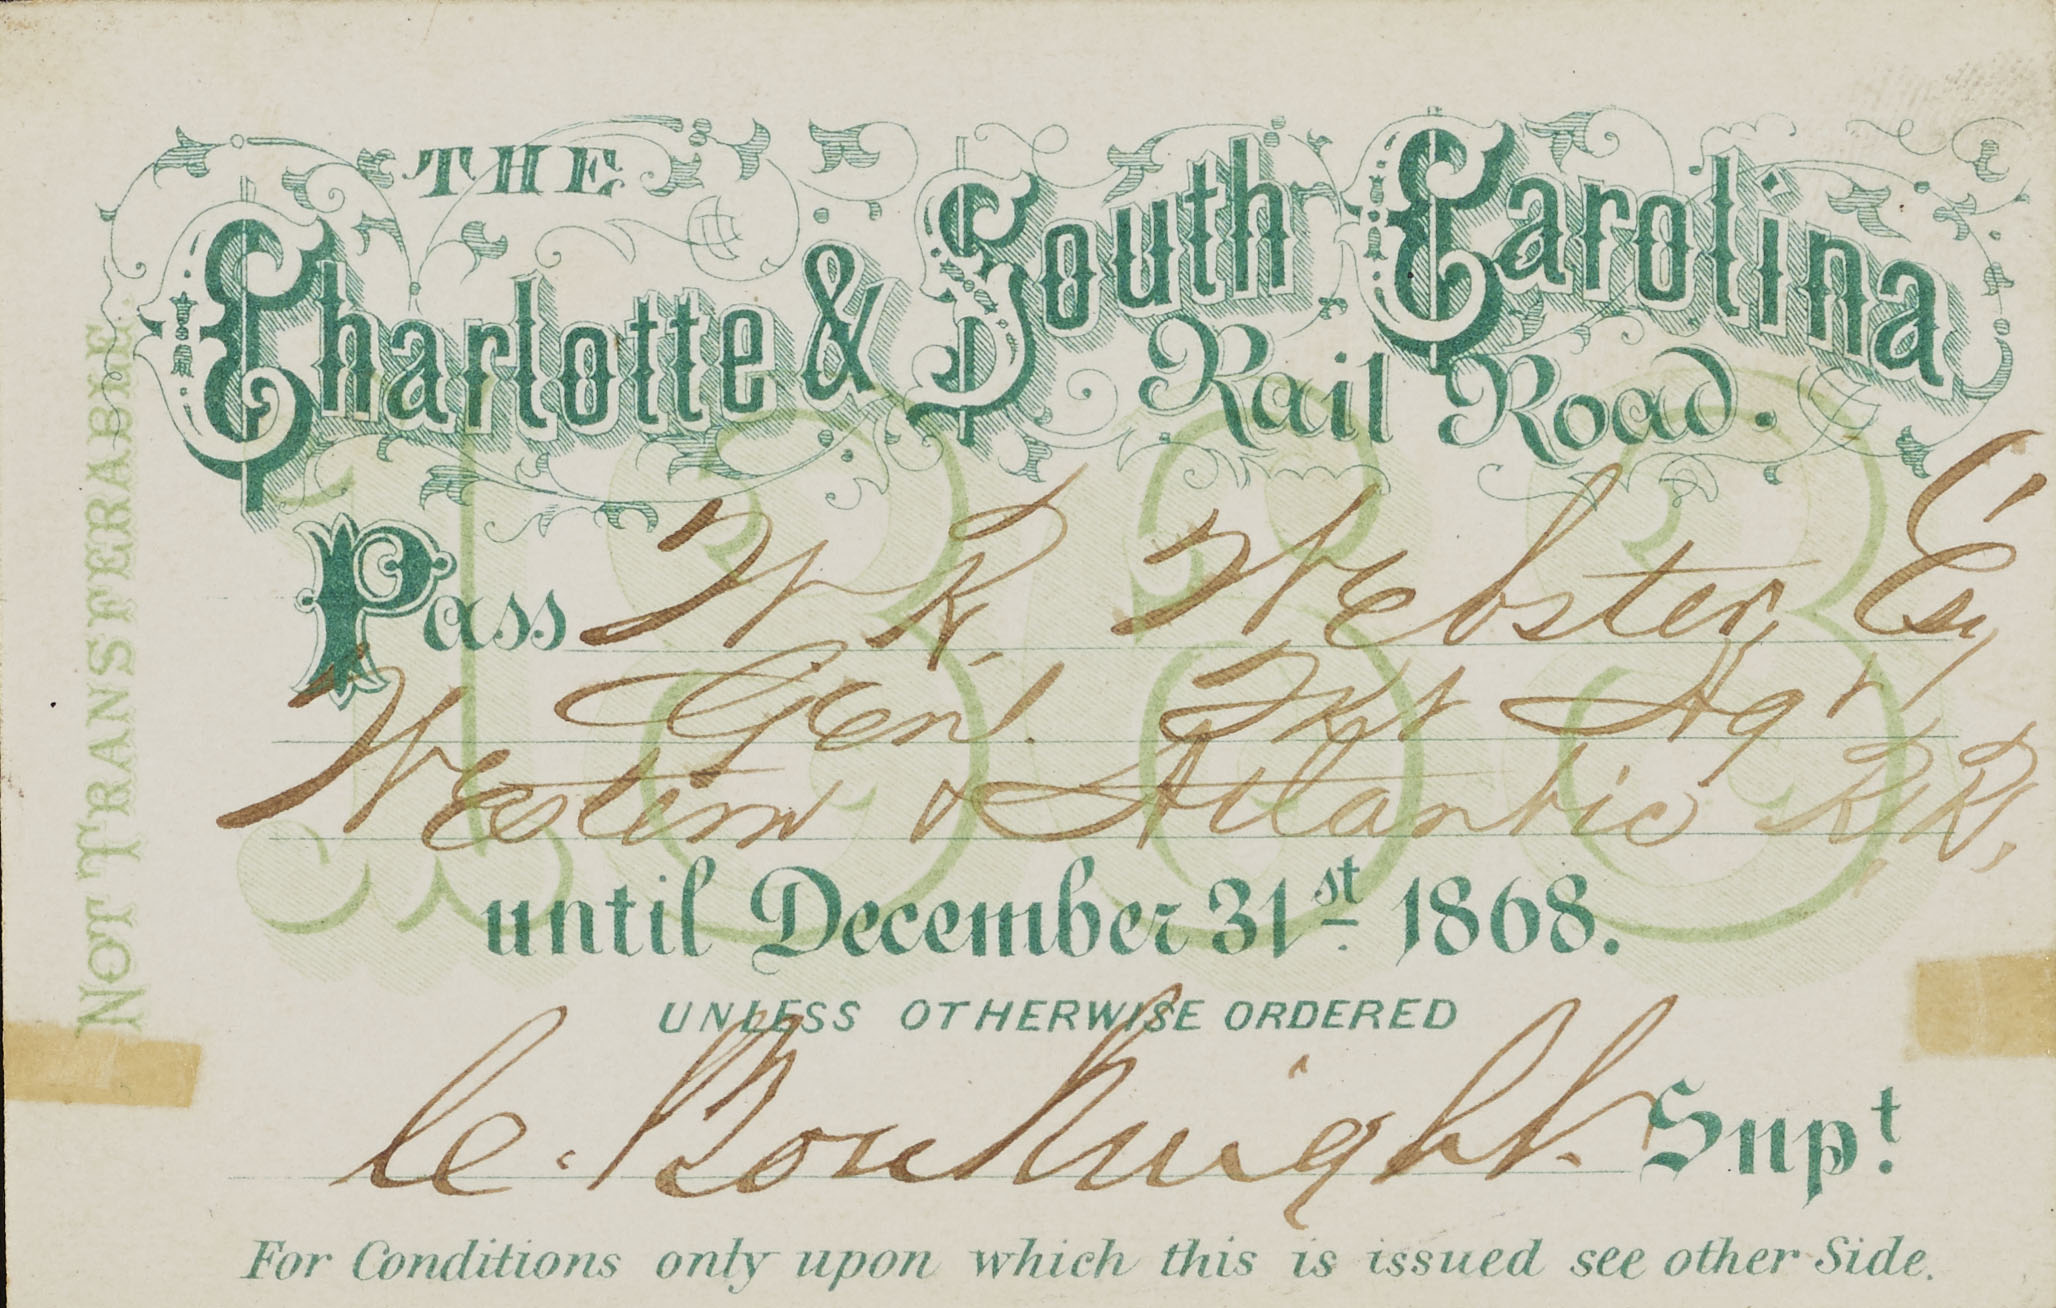 THE
Charlotte & South Carolina
Rail Road.
1868
Pass W. R. Webster, Esq
Gen'l. Tkt Ag't
Western & Atlantic R. R.
until December 31st 1868.
UNLESS OTHERWISE ORDERED
C. Bouknight. Sup.t
For Conditions only upon which this is issued see other Side.
NOT TRANSFERABLE.